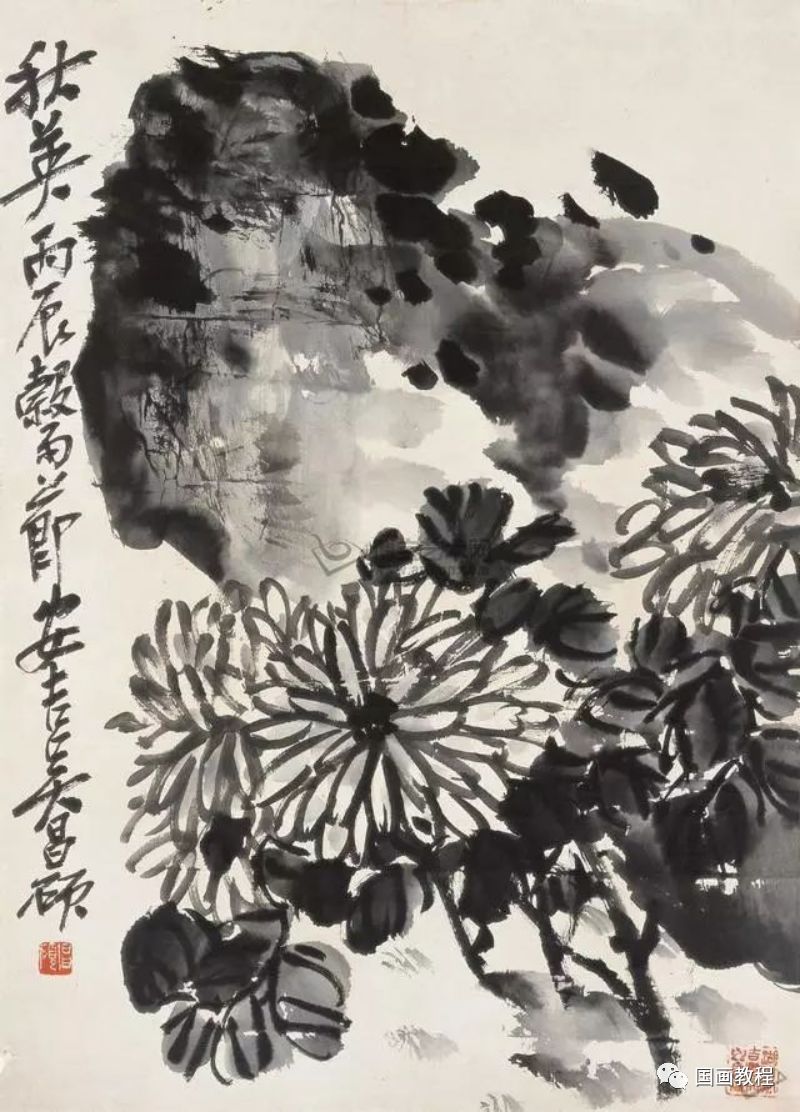 秋英丙辰穀雨節安吉吳昌碩
国画教程